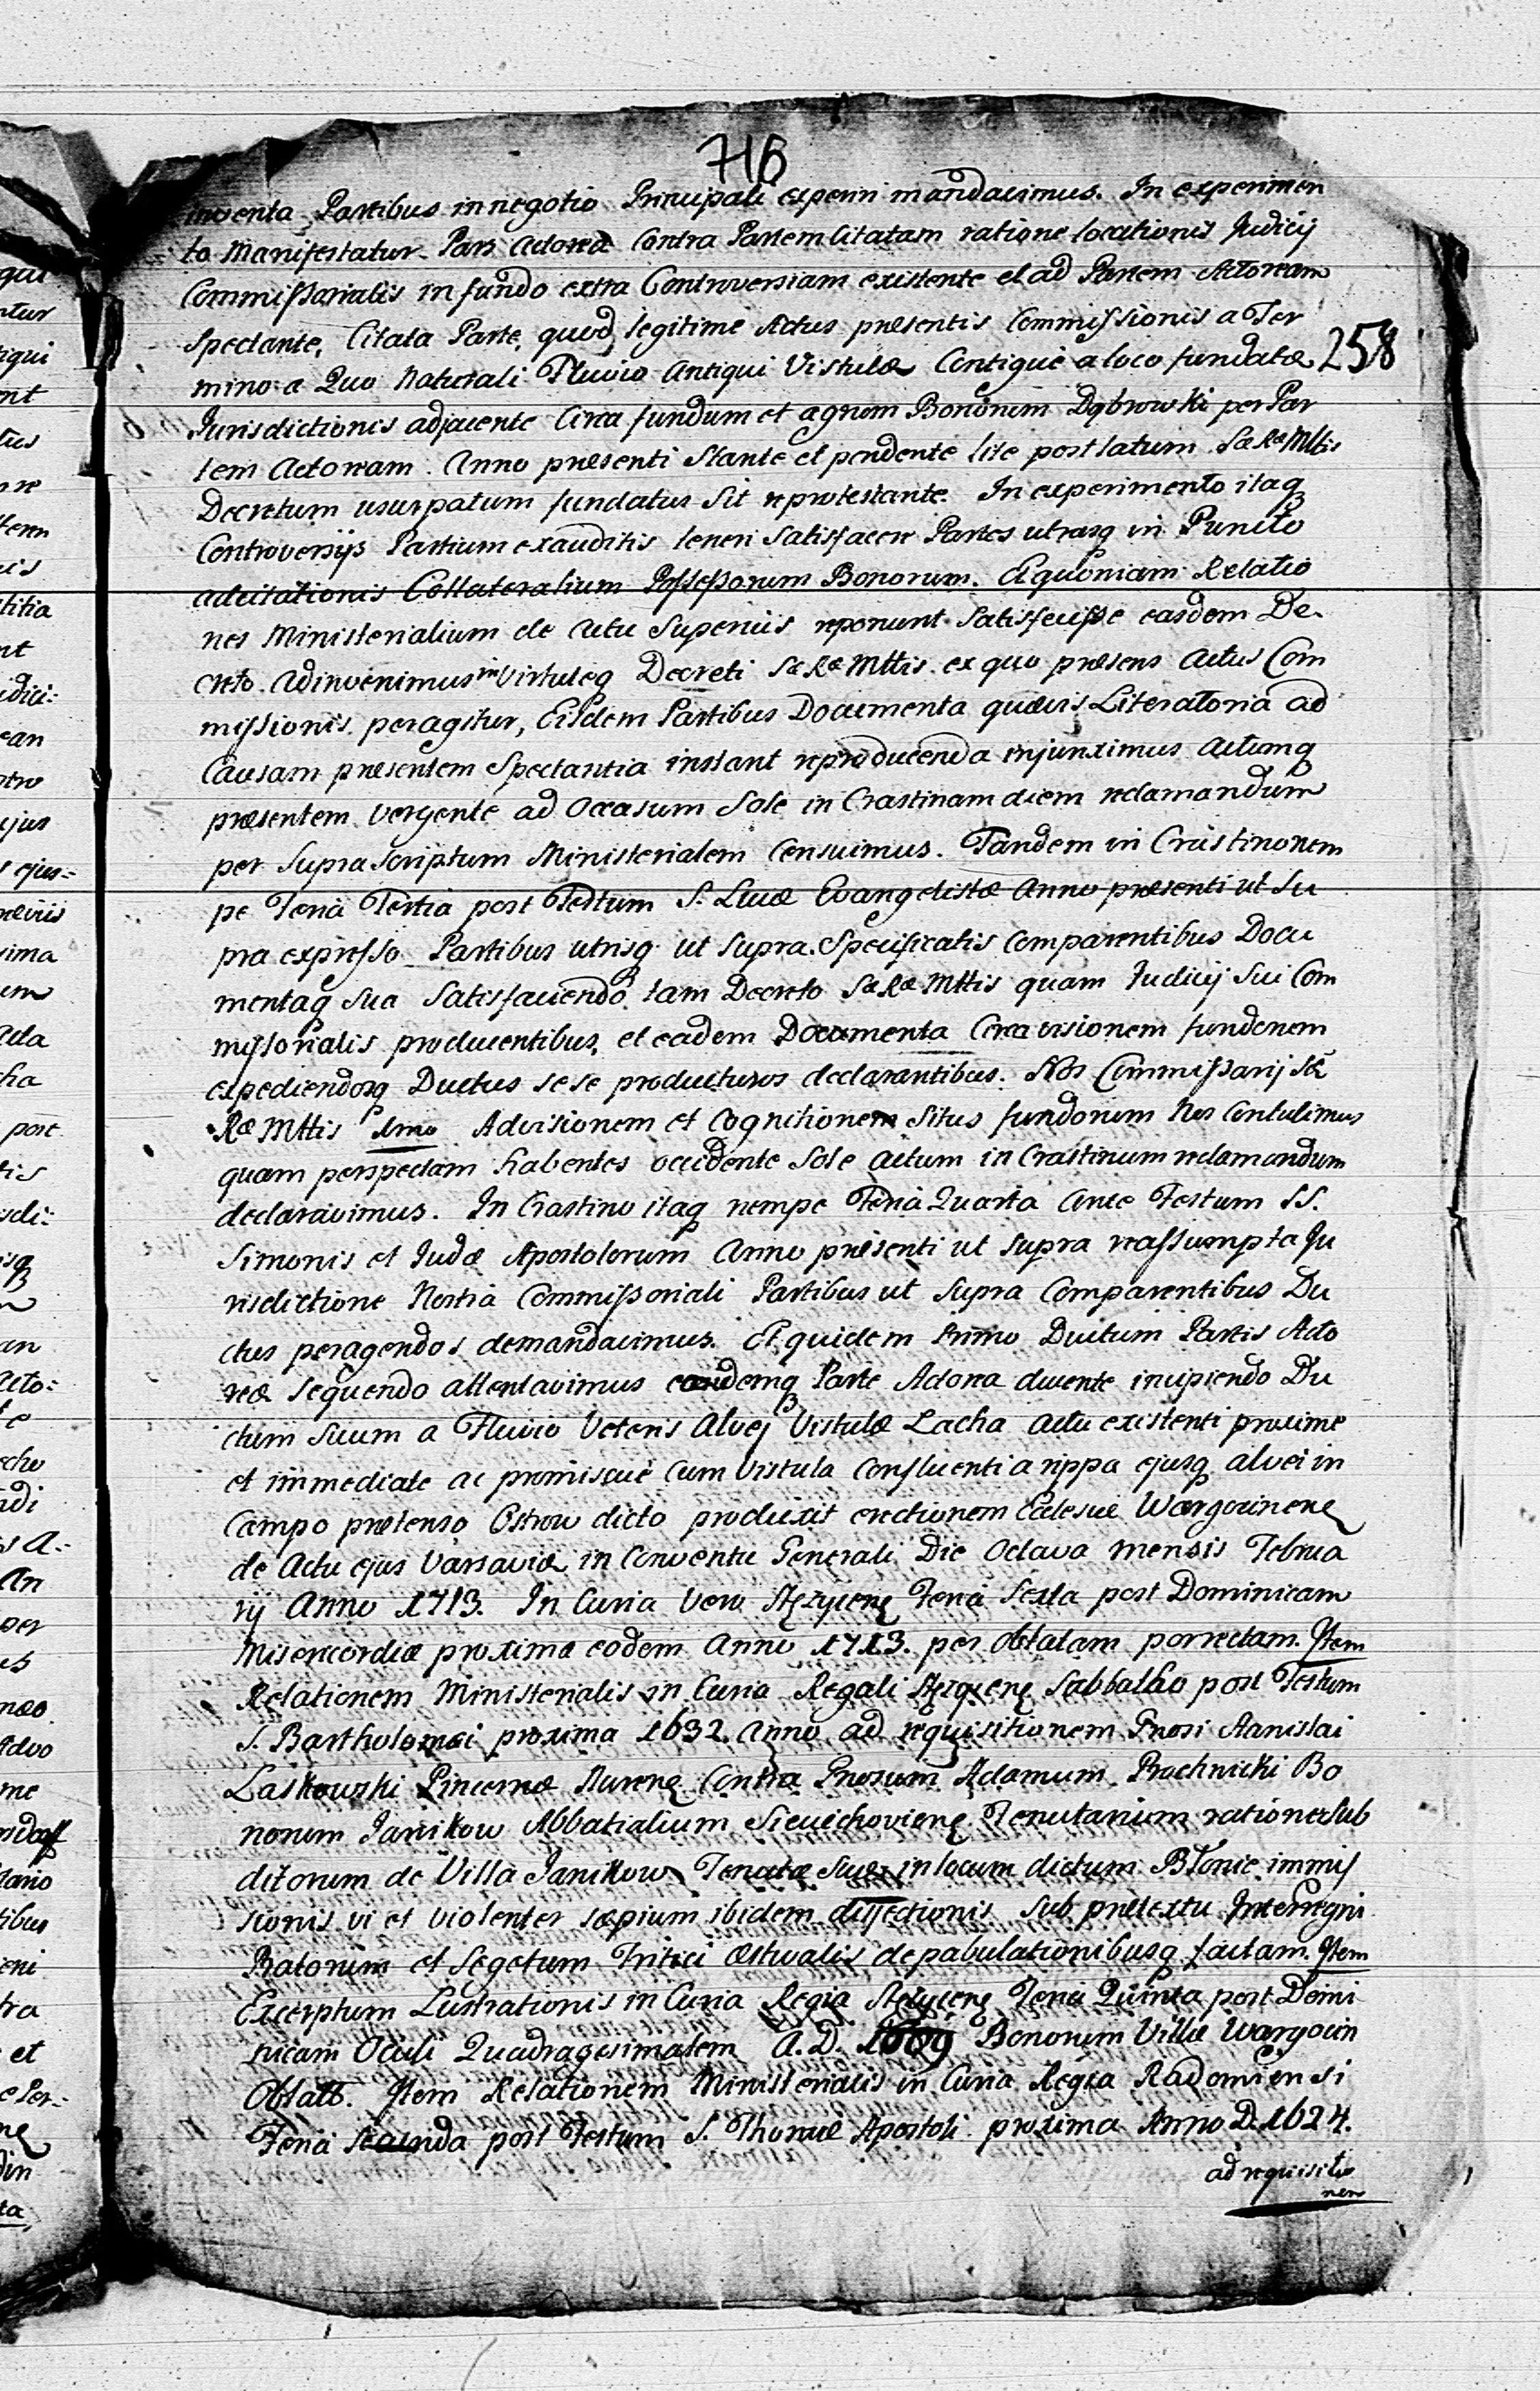 716
inventa Partibus in negotio Principali experiri mandavimus. In experimen
to Manifestatur Pars Actorea Contra Partem Citatam ratione locationis Judicij
Commissorialis in fundo extra Controversiam existente et ad Partem Actoream
spectante, Citata Parte, quod legitime Actus presentis Commissionis a Ter
mino a Quo Naturali Fluvio Antiqui Vistulæ Contigue a loco fundatæ
258
Jurisdictionis adjacente Circa fundum et agrum Bonorum Dąbrowski per Par
tem Actoream Anno presenti Stante et pendente lite post latum Sæ Ræ Mttis
Decretum usurpatum fundatus sit reprotestante. In experimento itaq
Controversijs Partium exauditis teneri Satisfacere Partes utrasq in Puncto
adcitationis Collateralium Possessorum Bonorum. Et quoniam Relatio
nes Ministerialium de Actu Superius reponunt Satisfecisse easdem De
creto Adinvenimus in Virtuteq Decreti Sæ Ræ Mttis ex quo præsens Actus Com
missionis peragitur, Eisdem Partibus Documenta quævis Literatoria ad
Causam presentem Spectantia instant reproducenda injunximus Actumq
præsentem Vergente ad Occasum Sole in Crastinam diem reclamandum
per Suprascriptum Ministerialem Censuimus. Tandem in Crastino nem
pe Feria Tertia post Festum S. Lucæ Evangelistæ Anno præsenti ut Su
pra expresso Partibus utrisq ut Supra Specificatis Comparentibus Docu
mentaq sua Satisfaciendo tam Decreto Sæ Ræ Mttis quam Judicij Sui Com
missorialis producentibus, et eadem Documenta Circa visionem fundorum
expediendosq Ductus sese producturos declarantibus. Nos Commissarij Sæ
Ræ Mttis Imo Ad visionem et Cognitionem Situs fundorum Nos Contulimus
quam perspectam habentes occidente Sole actum in Crastinum reclamandum
declaravimus. In Crastino itaq nempe Feria Quarta Ante Festum SS.
Simonis et Judæ Apostolorum Anno presenti ut Supra reassumpta Ju
risdictione Nostra Commissoriali Partibus ut Supra Comparentibus Du
ctus peragendos demandavimus. Et quidem Primo Ductum Partis Acto
reæ sequendo attentavimus eandemq Parte Actorea ducente incipiendo Du
ctum suum a Fluvio Veteris Alvej Vistulæ Lacha actu existenti proxime
et immediate ac promiscue Cum Vistula Confluenti a rippa ejusq alvei in
Campo prætenso Ostrow dicto produxit erectionem Eclesiæ Wargocinens
de Actu ejus Varsaviæ in Conventu Generali Die Octava mensis Februa
rij Anno 1713. In Curia Vero Stężycens Feria Sexta post Dominicam
Misericordiæ proxima eodem Anno 1713. per Oblatam porrectam. Item
Relationem Ministerialis in Curia Regali Stężycens Sabbatho post Festum
S. Bartholomæi proxima 1632. Anno ad requisitionem Gnosi Stanislai
Laskowski Pincernæ Nurens Contra Gnosum Adamum Prochnicki Bo
norum Janikow Abbatialium Sieciechoviens Tenutarium ratione Sub
ditorum de Villa Janikow Tenutæ Suæ in locum dictum Błonie immis
sionis vi et violenter sæpium ibidem disjectionis sub prætextu Interregni
Pratorum et Segetum Tritici æstivalis depabulationibusq factam. Item
Excerptum Lustrationis in Curia Regia Stężycens Feria Quinta post Domi
nicam Oculi Quadragesimalem A. D. 1669 Bonorum Villæ Wargocin
Oblatt. Item Relationem Ministerialis in Curia Regia Radomiensi
Feria Secunda post Festum S. Thomæ Apostoli proxima Anno D. 1624.
ad requisitio
nem